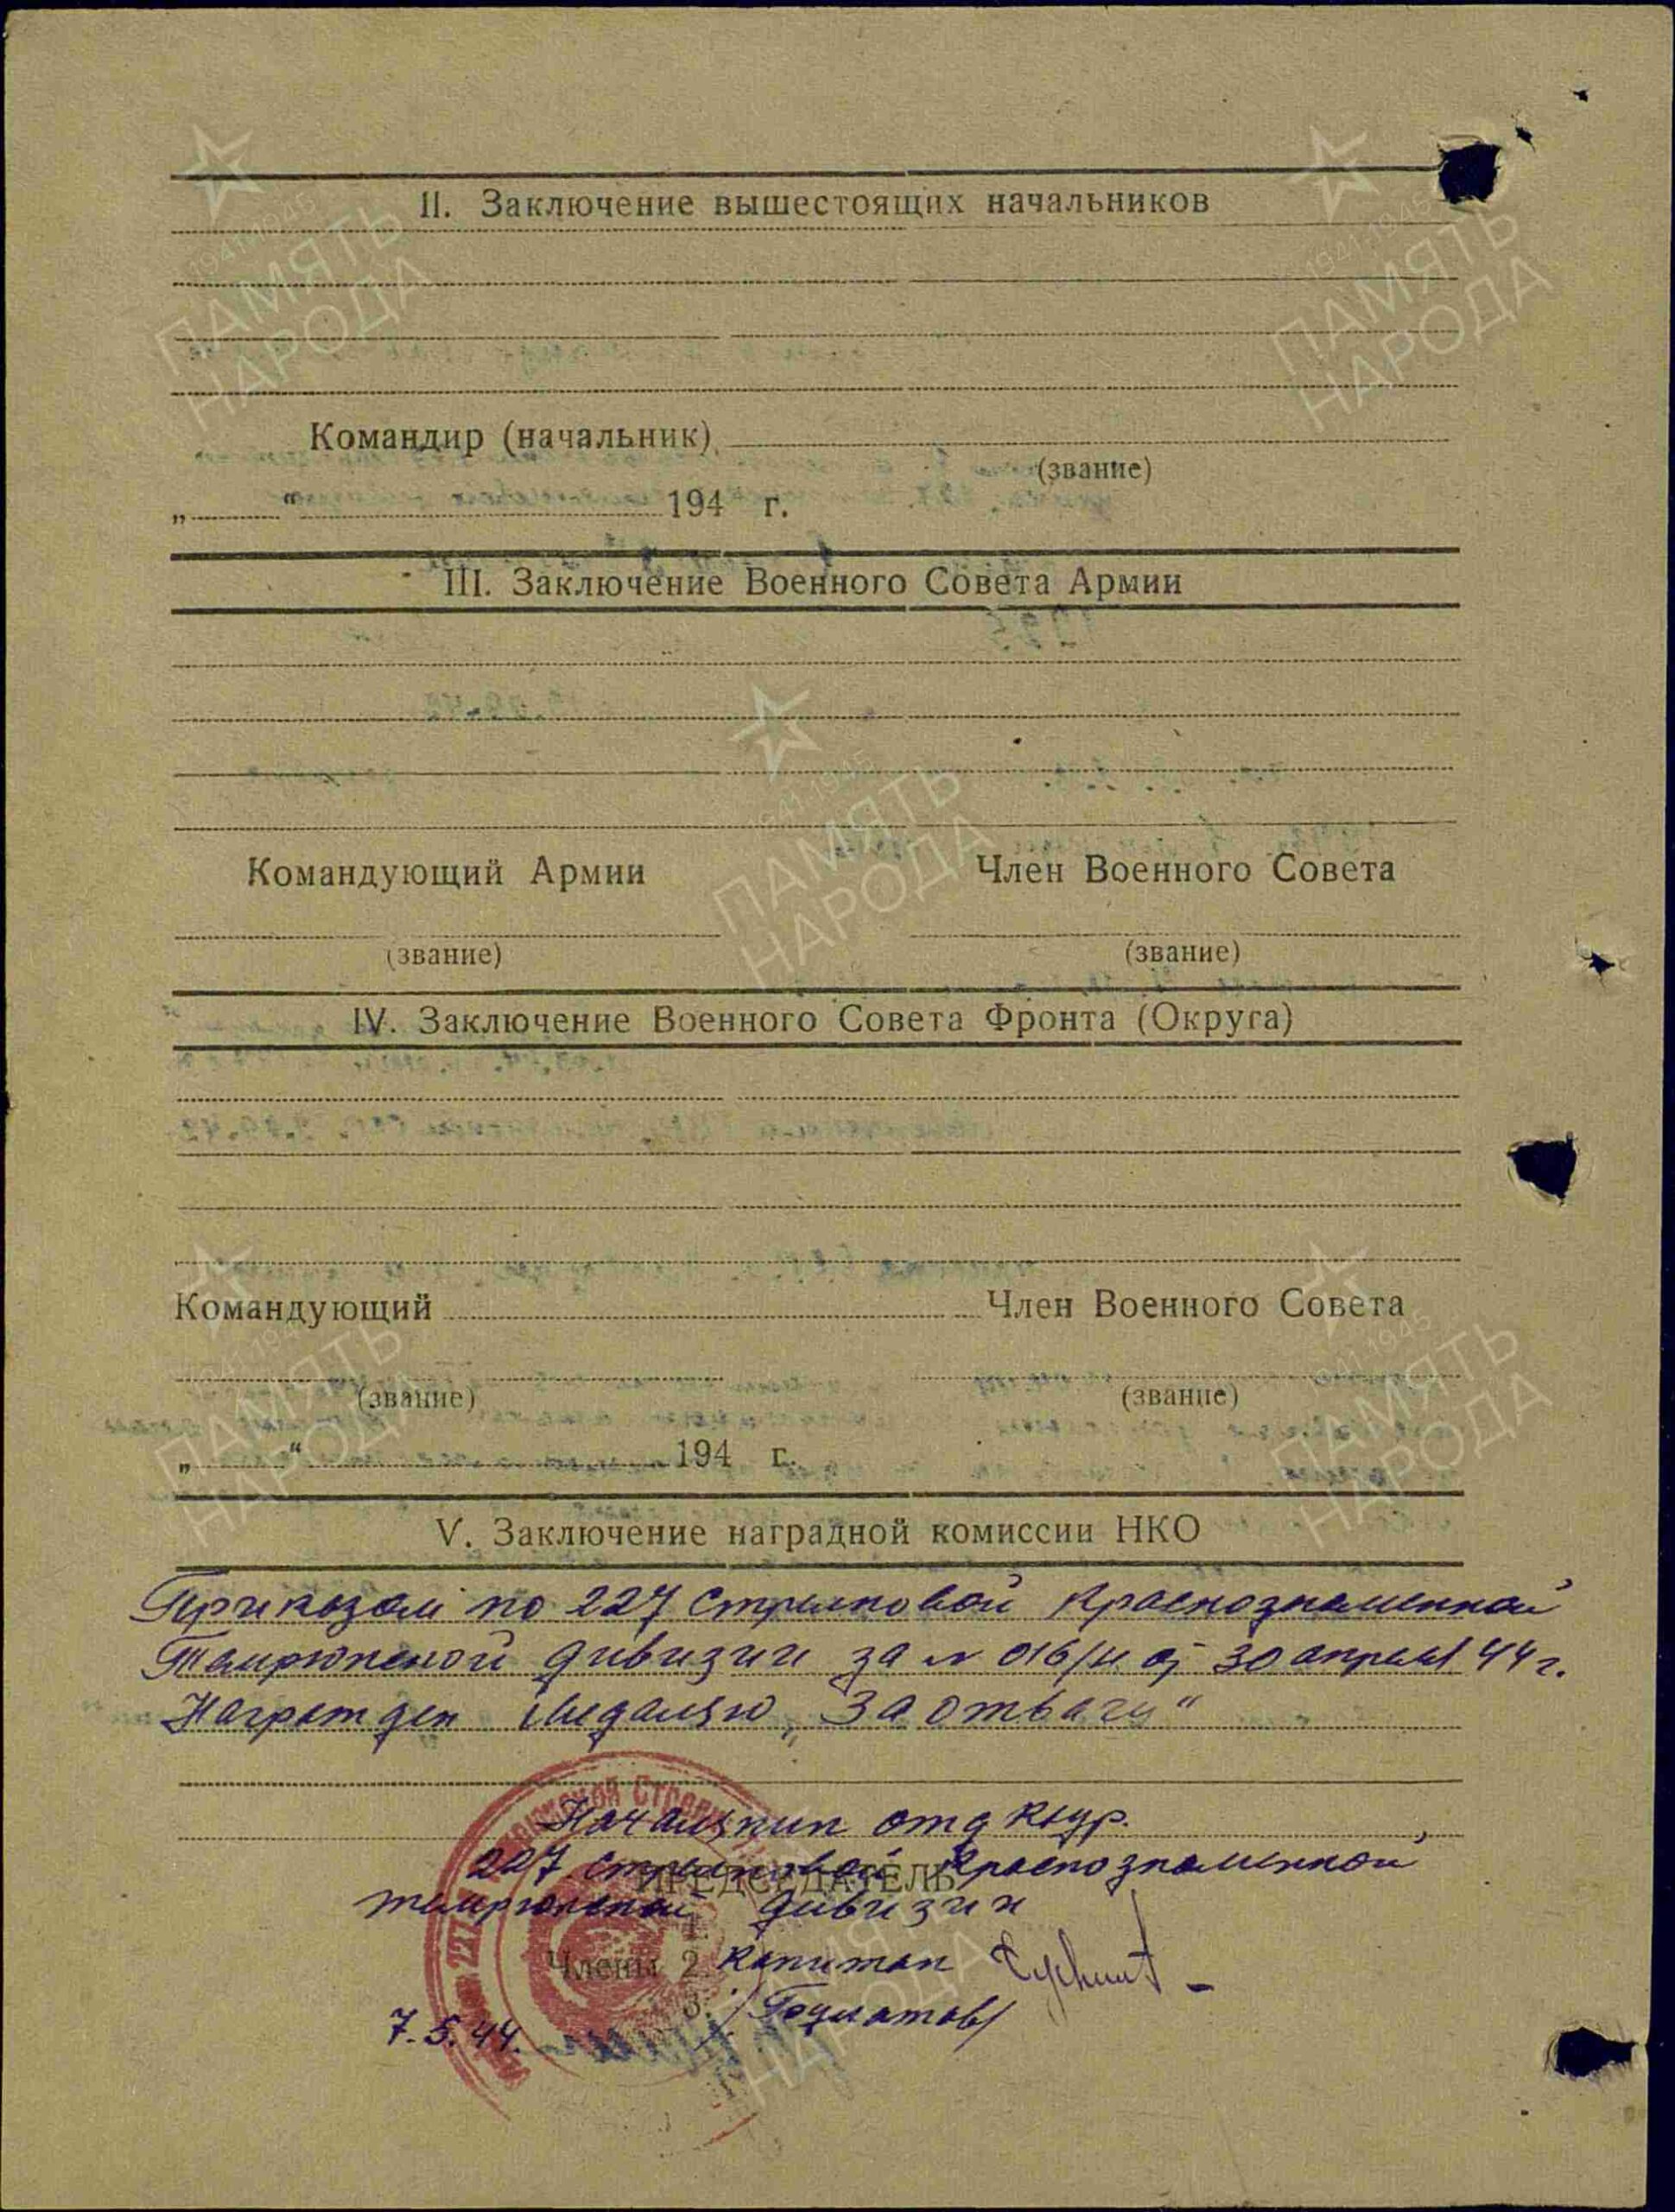 II. Заключение вышестоящих начальников
Командир (начальник)
(звание)
„ “ 194 г.
III. Заключение Военного Совета Армии
Командующий Армии Член Военного Совета
(звание) (звание)
IV. Заключение Военного Совета Фронта (Округа)
Командующий Член Военного Совета
(звание) (звание)
„ “ 194 г.
V. Заключение наградной комиссии НКО
Приказом по 227 Стрелковой Краснознаменной
Темрюкской дивизии за № 016/н от 30 апреля 44 г.
Награжден медалью „За отвагу“
Начальник отд кадр.
227 стрелковой Краснознаменной
ПРЕДСЕДАТЕЛЬ
темрюкской дивизии
1.
Члены 2. Капитан
3.
7.5.44.
1941 1945
ПАМЯТЬ
НАРОДА
1941 1945
ПАМЯТЬ
НАРОДА
1941 1945
ПАМЯТЬ
НАРОДА
1941 1945
ПАМЯТЬ
НАРОДА
1941 1945
ПАМЯТЬ
НАРОДА
ПАМЯТЬ
НАРОДА